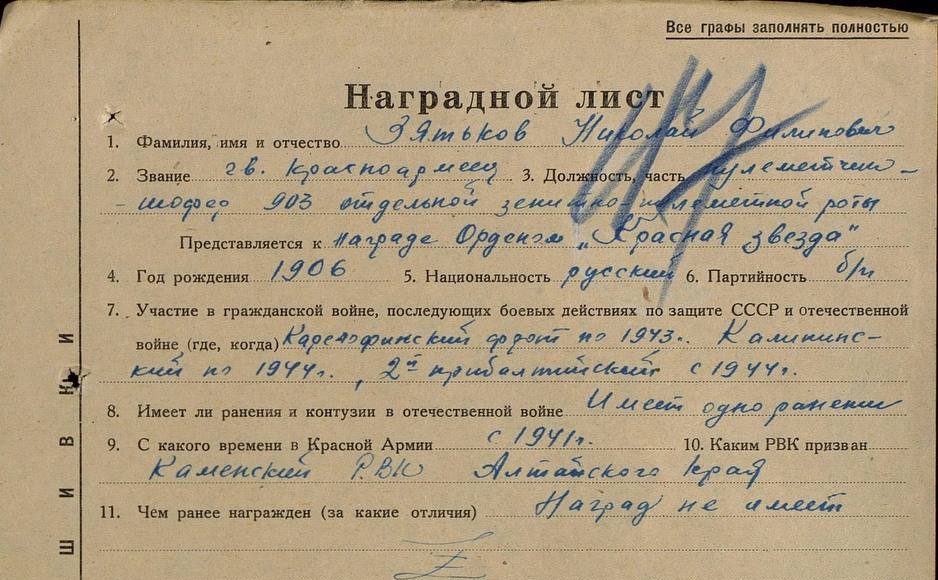 Все графы заполнять полностью
Наградной лист
1. Фамилия, имя и отчество Зятьков Николай Филипович
2. Звание гв. красноармеец 3. Должность, часть пулеметчик-
-шофер 903 отдельной зенитно-пулеметной роты
Представляется к награде Орденом „Красная звезда"
4. Год рождения 1906 5. Национальность русский 6. Партийность б/п
7. Участие в гражданской войне, последующих боевых действиях по защите СССР и отечественной
войне (где, когда) Карелофинский фронт по 1943г. Калининс-
кий по 1944г., 2й прибалтийский с 1944г.
8. Имеет ли ранения и контузии в отечественной войне Имеет одно ранение
9. С какого времени в Красной Армии с 1941г. 10. Каким РВК призван
Каменский РВК Алтайского края
11. Чем ранее награжден (за какие отличия) Наград не имеет
ШИВКИ